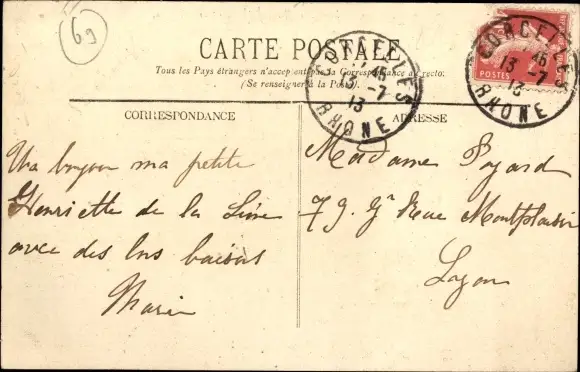 69
CARTE POSTALE
Tous les Pays étrangers n'acceptent pas la Correspondance au recto.
(Se renseigner à la Poste).
CORRESPONDANCE
ADRESSE
CORCELLES
45
13 -7
13
RHONE
CORCELLES
45
13 -7
13
RHONE
POSTES
Un bonjour ma petite
Henriette de la
avec des bons baisers
Marie
Madame
79 Gde Rue Montplaisir
Lyon